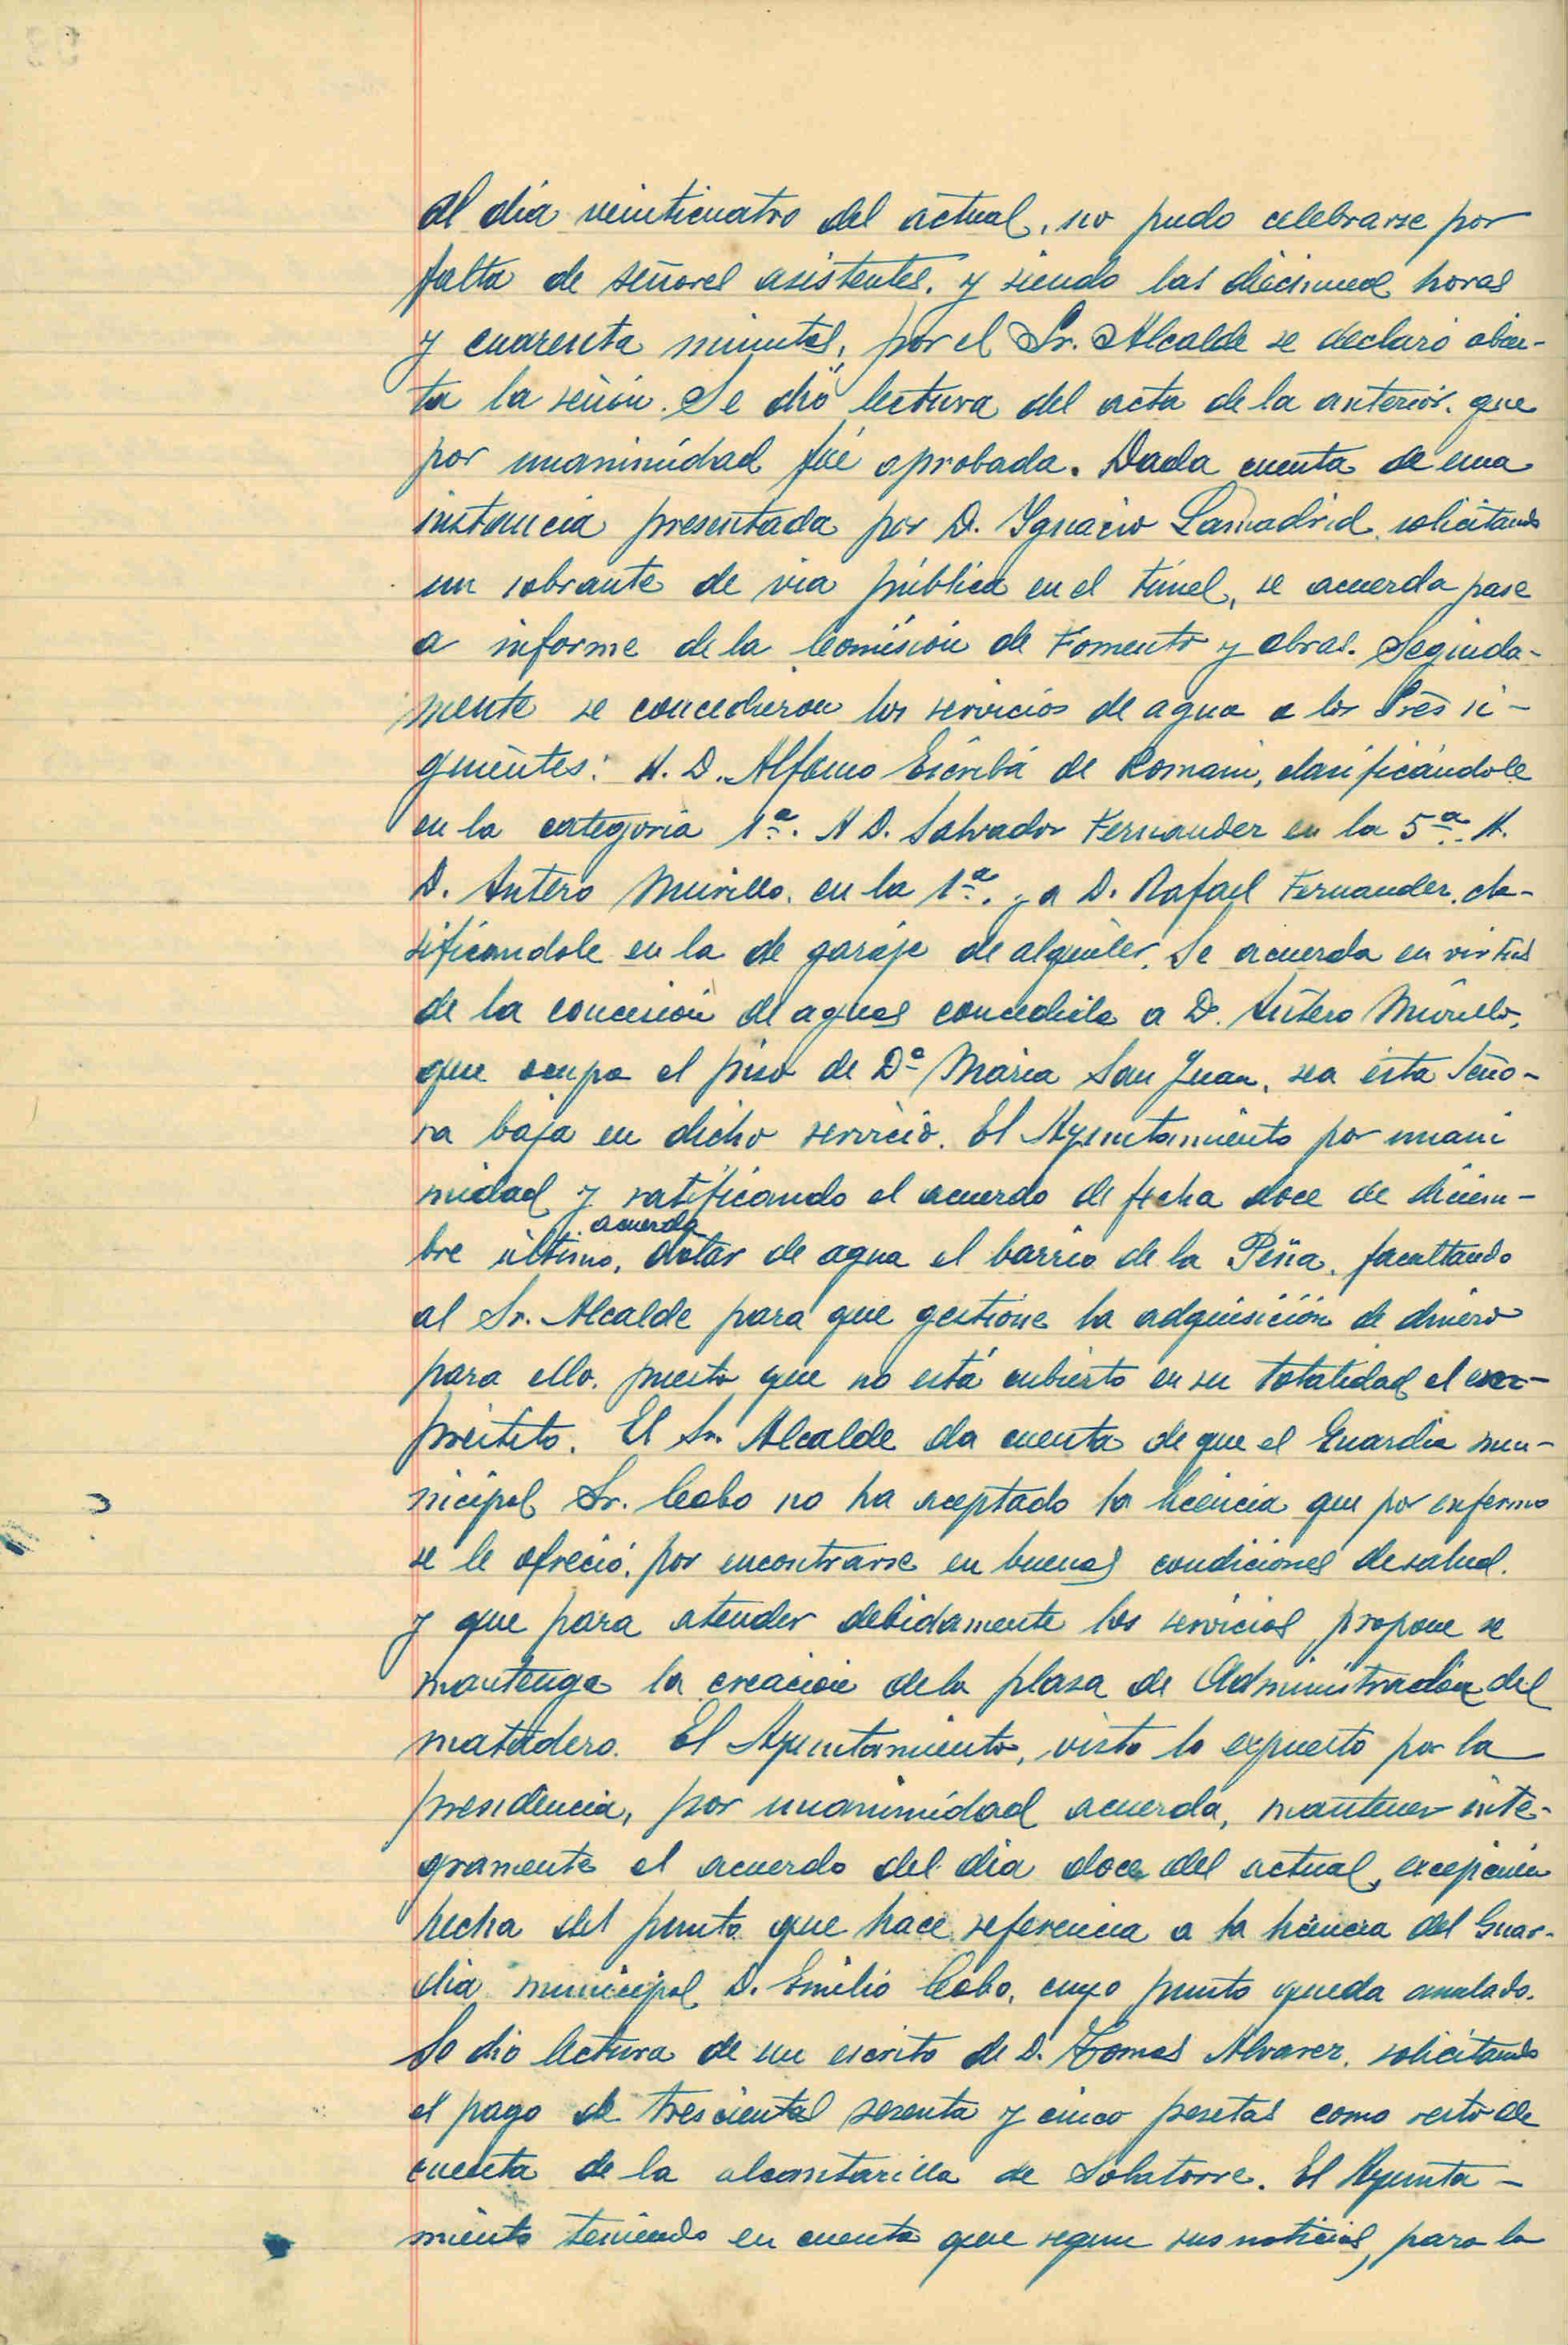 al día veinticuatro del actual, no pudo celebrarse por
falta de señores asistentes, y siendo las diecinueve horas
y cuarenta minutos, por el Sr. Alcalde se declaró abier-
ta la sesión. Se dió lectura del acta de la anterior, que
por unanimidad fué aprobada. Dada cuenta de una
instancia presentada por D. Ygnacio Lamadrid, solicitando
un sobrante de via pública en el Túnel, se acuerda pase
a informe de la Comisión de Fomento y obras. Seguida-
mente se concedieron los servicios de agua a los Sres si-
guientes: A. D. Alfonso Escribá de Romaní, clasificándole
en la categoría 1ª. A D. Salvador Fernandez en la 5ª. A.
D. Antero Murillo, en la 1ª, y a D. Rafael Fernandez, cla-
sificandole en la de garaje de alquiler. Se acuerda en virtud
de la concesión de aguas concedida a D. Antero Murillo,
que ocupa el piso de Dª Maria San Juan, sea esta Seño-
ra baja en dicho servicio. El Ayuntamiento por unani
midad y ratificando el acuerdo de fecha doce de diciem-
acuerda
bre último, dotar de agua el barrio de la Peña, facultando
al Sr. Alcalde para que gestione la adquisición de dinero
para ello, puesto que no está cubierto en su totalidad el em-
préstito. El Sr. Alcalde da cuenta de que el Guardia mu-
nicipal Sr. Cobo no ha aceptado la licencia que por enfermo
se le ofreció, por encontrarse en buenas condiciones de salud.
y que para atender debidamente los servicios propone se
mantenga la creación de la plaza de Administrador del
matadero. El Ayuntamiento, visto lo expuesto por la
presidencia, por unanimidad acuerda, mantener inte-
gramente el acuerdo del dia doce del actual, excepción
hecha del punto que hace referencia a la licencia del Guar-
dia municipal D. Emilio Cobo, cuyo punto queda anulado.
Se dio lectura de un escrito de D. Tomas Alvarez, solicitando
el pago de trescientas sesenta y cinco pesetas como resto de
cuenta de la alcantarilla de Solatorre. El Ayunta-
miento teniendo en cuenta que segun sus noticias, para la